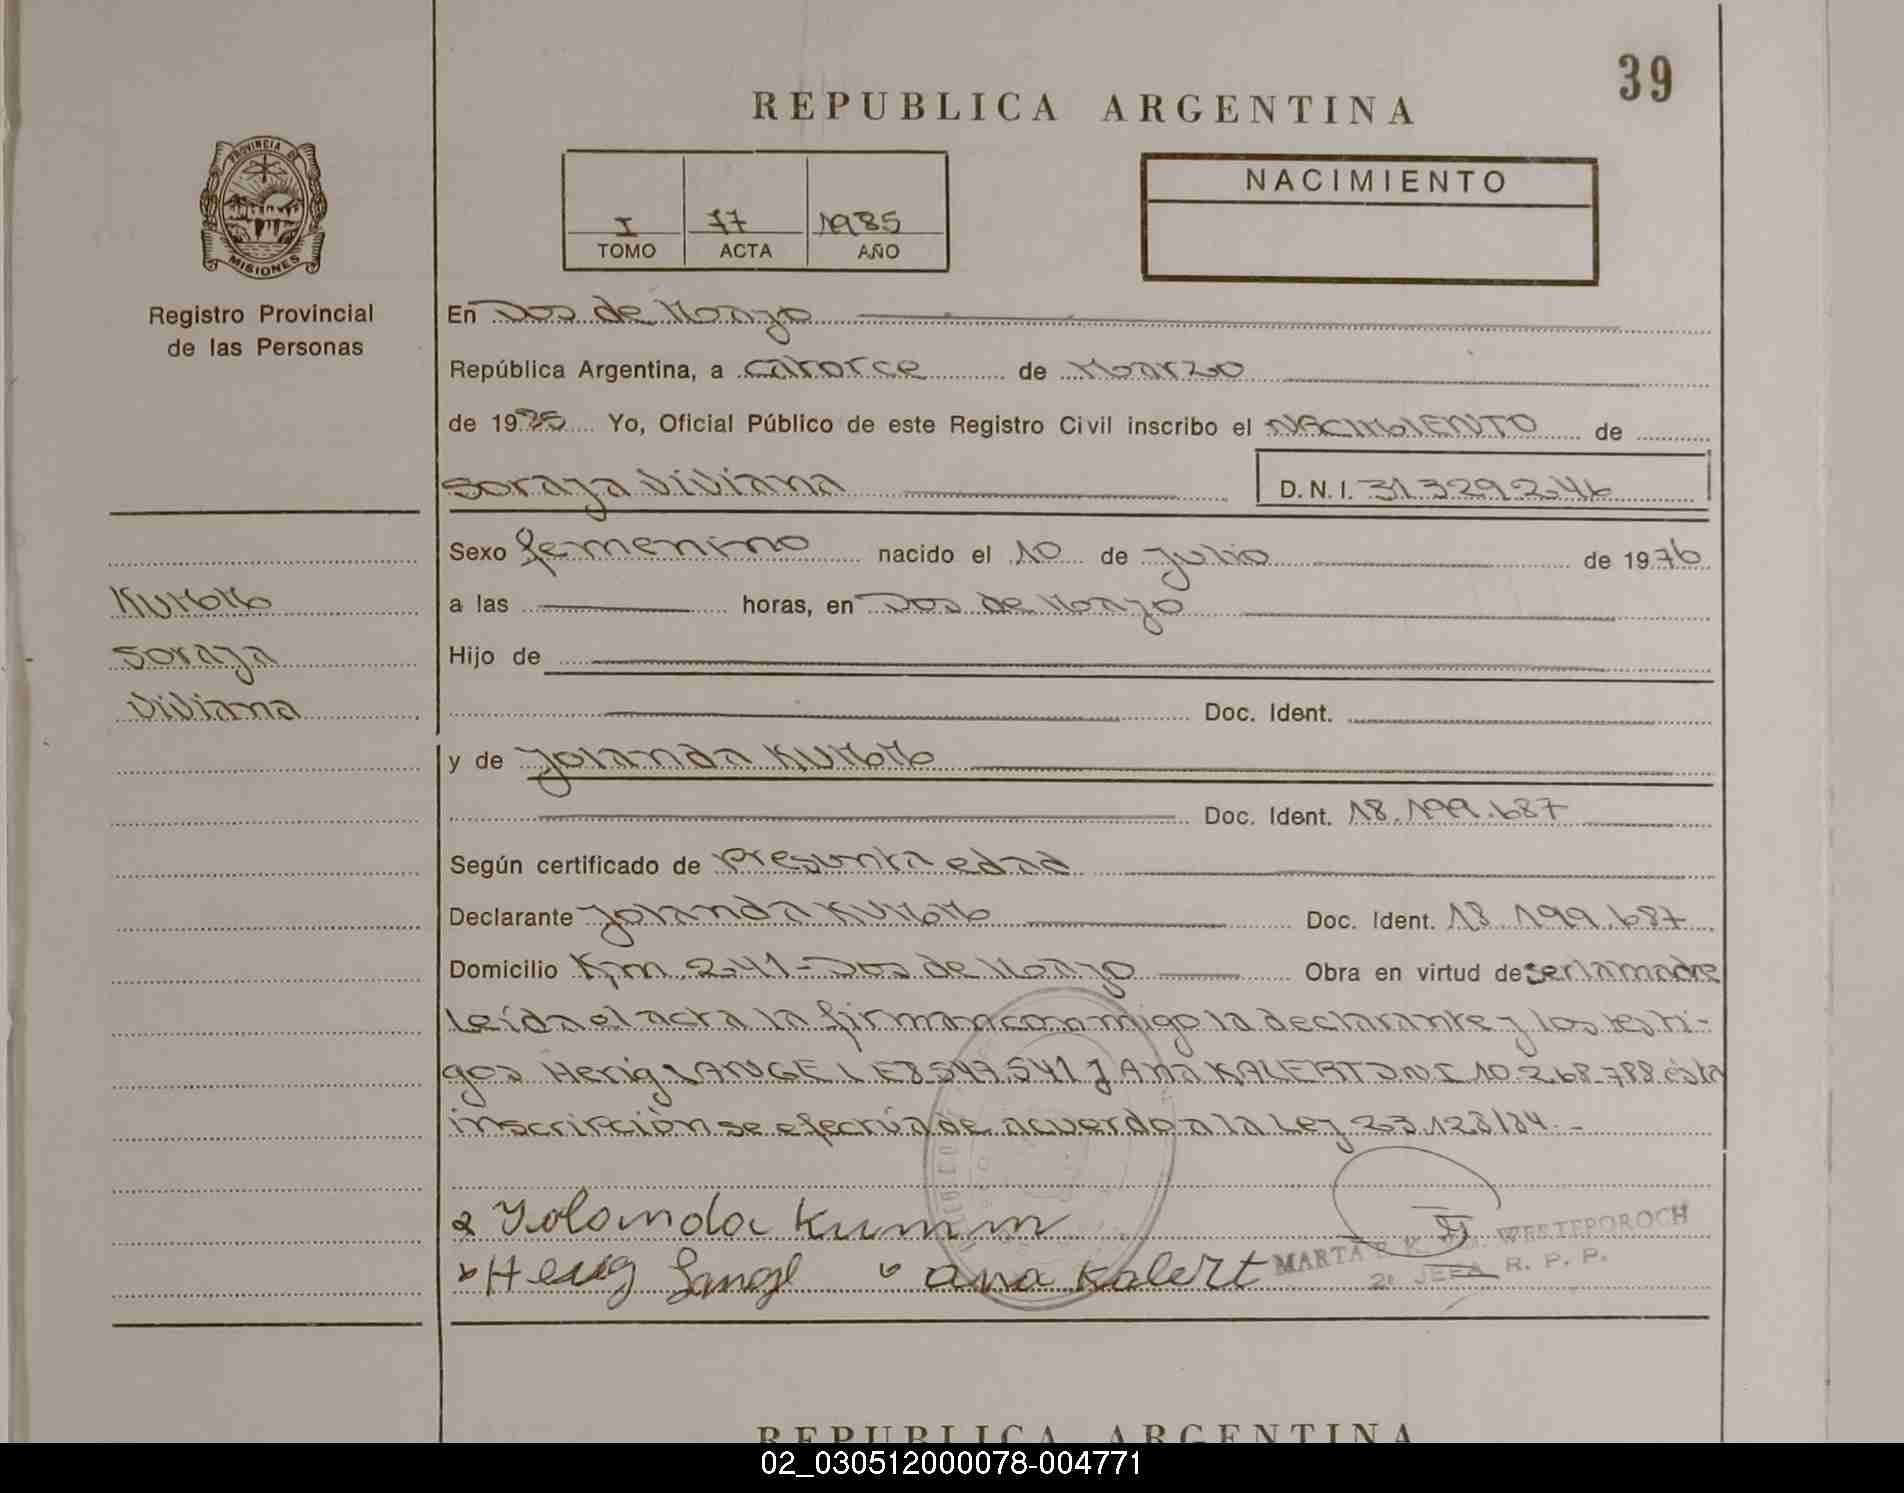 39
REPUBLICA ARGENTINA
PROVINCIA DE
MISIONES
Registro Provincial
de las Personas
I 77 1985
TOMO ACTA AÑO
NACIMIENTO
En Dos de Mayo
República Argentina, a catorce de Marzo
de 1985 Yo, Oficial Público de este Registro Civil inscribo el NACIMIENTO de
Soraya Viviana D.N.I. 31.329.246
Sexo femenino nacido el 10 de Julio de 1976
KUMM
Soraya
Viviana
a las horas, en Dos de Mayo
Hijo de
Doc. Ident.
y de Yolanda KUMM
Doc. Ident. 18.199.687
Según certificado de presunta edad
Declarante Yolanda KUMM Doc. Ident. 18.199.687
Domicilio Km 241 - Dos de Mayo Obra en virtud de ser la madre
Leída el acta la firman conmigo la declarante y los testi-
gos Herig LANGE L E 8.549.541 y Ana KALERT D.N.I 10.268.788 ésta
inscripción se efectúa de acuerdo a la Ley 23.128/84.-
Yolanda Kumm
Herig Lange Ana Kalert
MARTA WESTEPOROCH
2º JEFA R. P. P.
REPUBLICA ARGENTINA
02_030512000078-004771